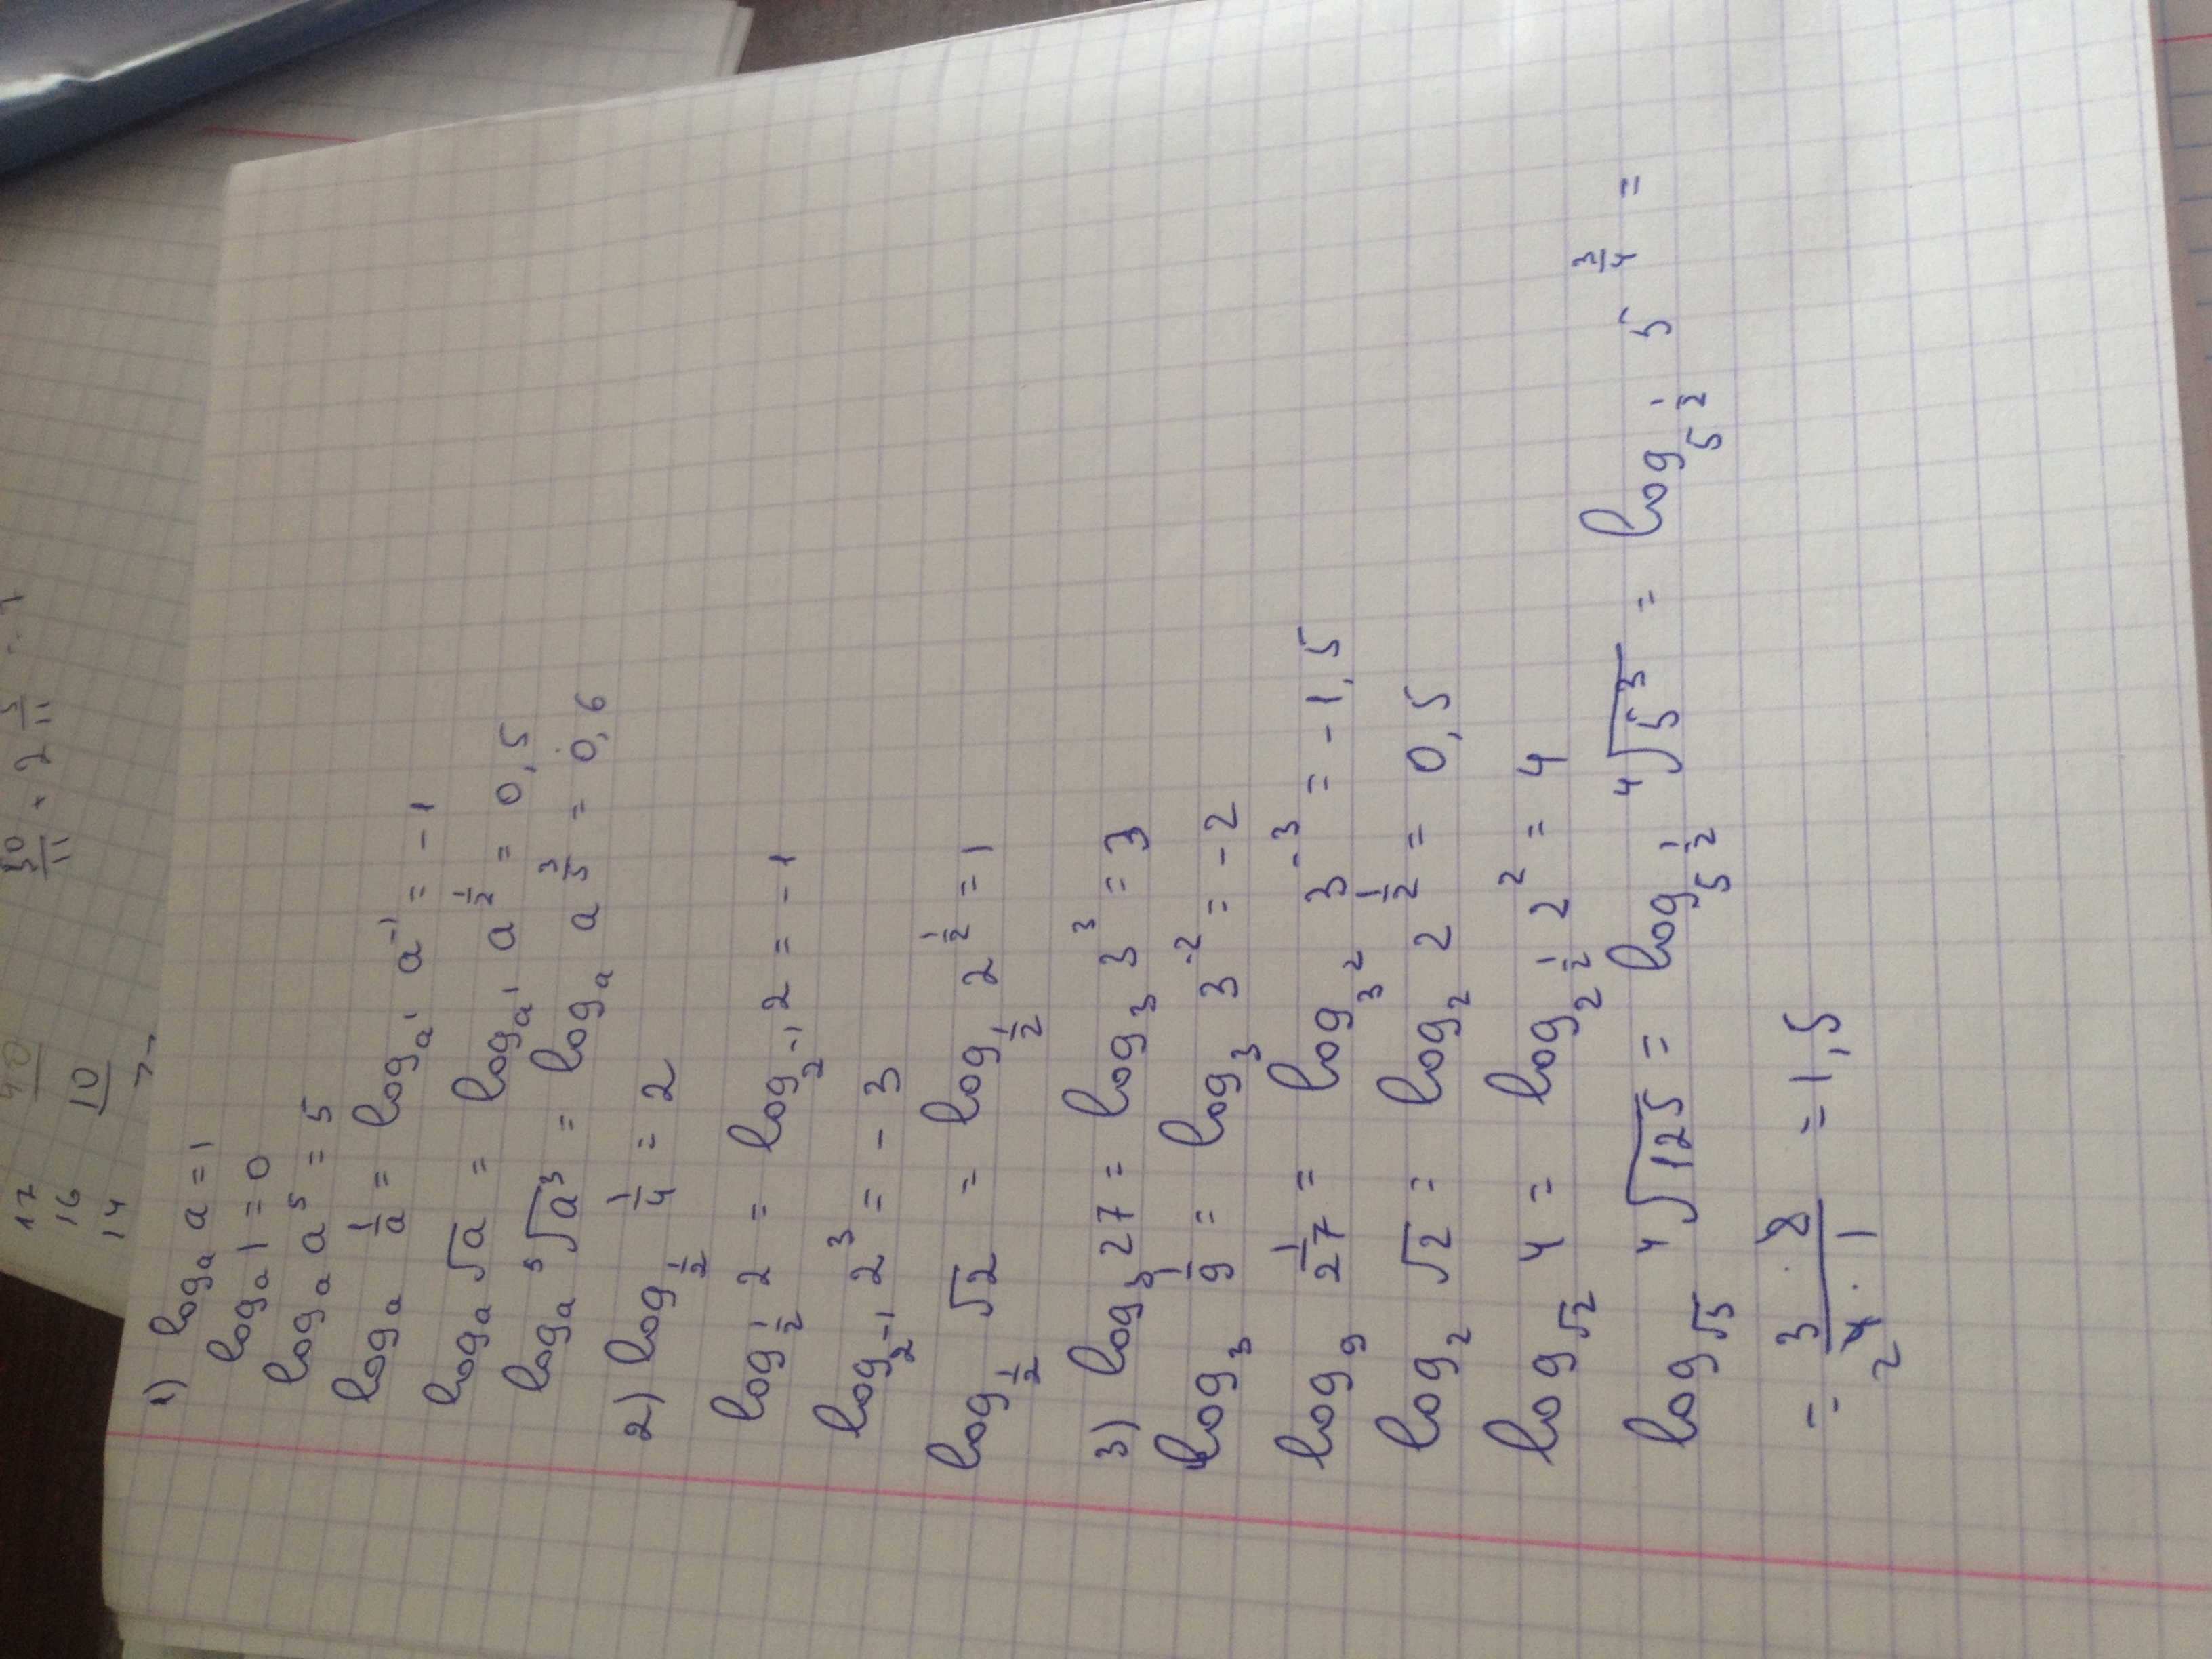 1) log_a a = 1
log_a 1 = 0
log_a a^5 = 5
log_a 1/a = log_{a^1} a^{-1} = -1
log_a √a = log_{a^1} a^{1/2} = 0,5
log_a ⁵√a³ = log_a a^{3/5} = 0,6
2) log_{1/2} 1/4 = 2
log_{1/2} 2 = log_{2^{-1}} 2 = -1
log_{2^{-1}} 2³ = -3
log_{1/2} √2 = log_{1/2} 2^{1/2} = 1
3) log_3 27 = log_3 3³ = 3
log_3 1/9 = log_3 3^{-2} = -2
log_9 1/27 = log_{3^2} 3^{-3} = -1,5
log_2 √2 = log_2 2^{1/2} = 0,5
log_{√2} 4 = log_{2^{1/2}} 2² = 4
log_{√5} ⁴√125 = log_{5^{1/2}} ⁴√5³ = log_{5^{1/2}} 5^{3/4} =
= 3 · 2 / 4 · 1 = 1,5
2
17
16
14
10
40
50/11 · 2 5/11